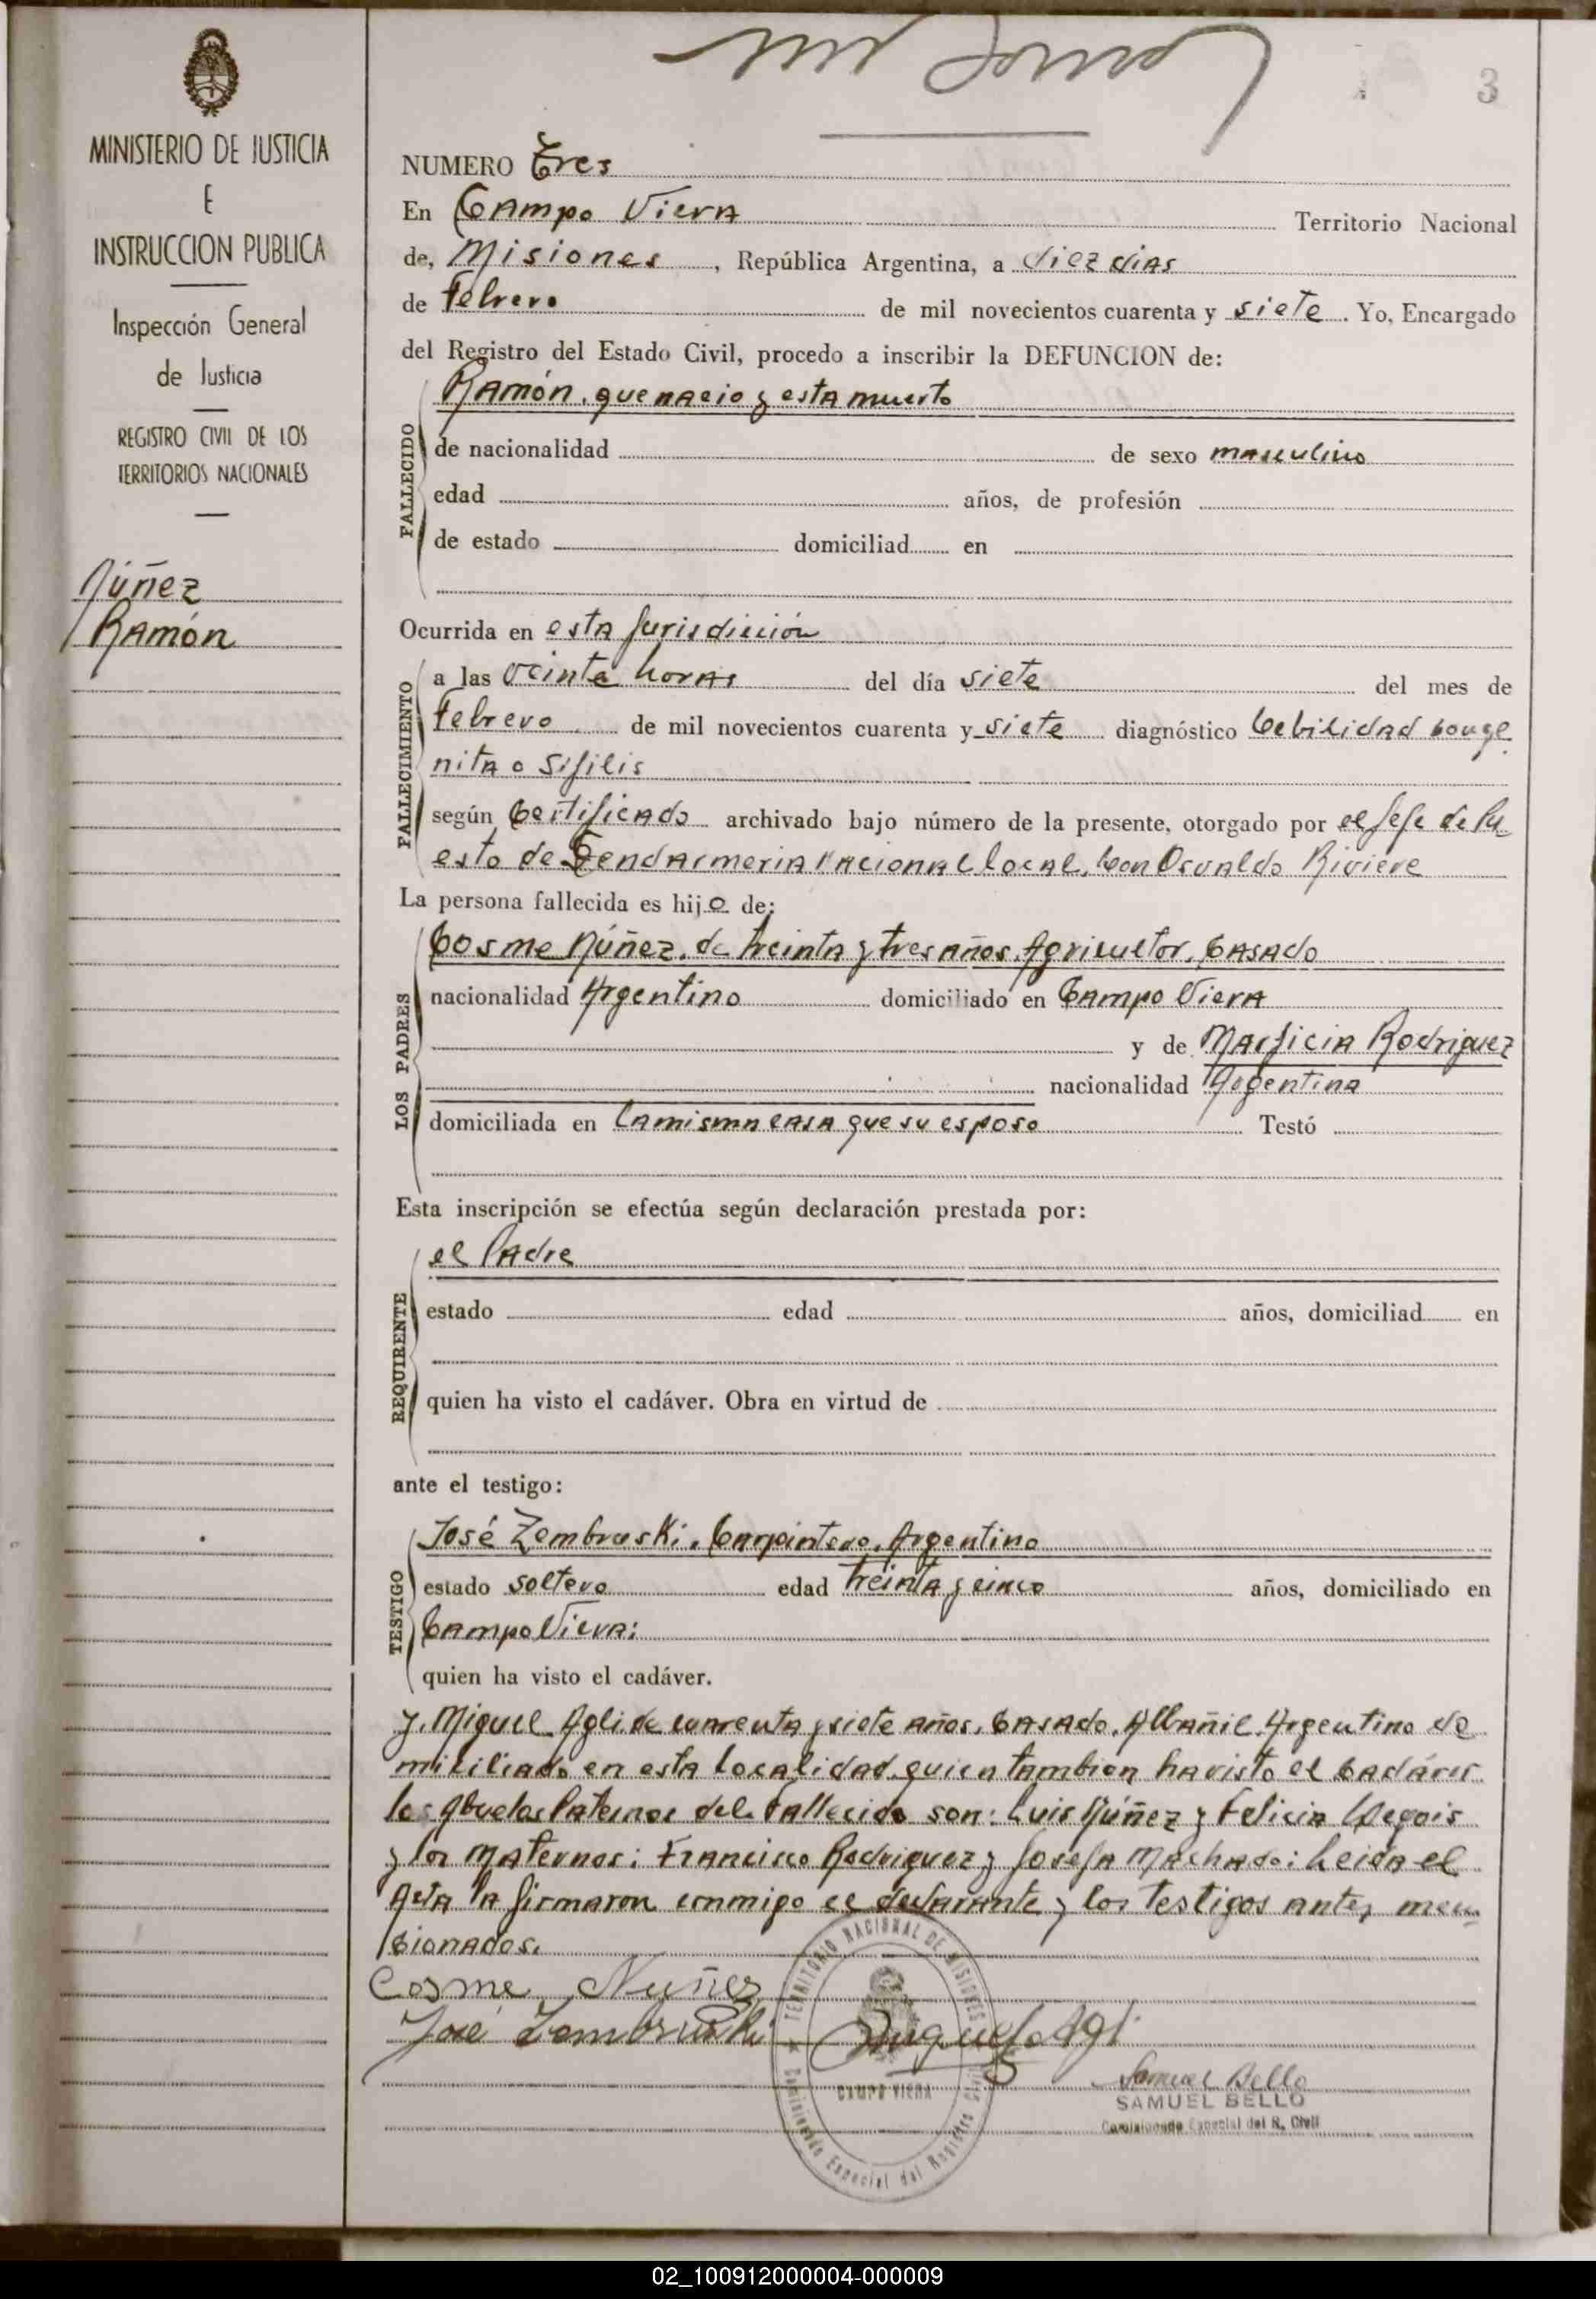 3
MINISTERIO DE JUSTICIA
E
INSTRUCCION PUBLICA
Inspección General
de Justicia
REGISTRO CIVIL DE LOS
TERRITORIOS NACIONALES
Núñez
Ramón
NUMERO Tres
En Campo Viera Territorio Nacional
de, Misiones, República Argentina, a diez dias
de febrero de mil novecientos cuarenta y siete. Yo, Encargado
del Registro del Estado Civil, procedo a inscribir la DEFUNCION de:
Ramón, que nacio y esta muerto
FALLECIDO
de nacionalidad de sexo masculino
edad años, de profesión
de estado domiciliad en
Ocurrida en esta Jurisdicción
FALLECIMIENTO
a las veinte horas del día siete del mes de
febrero de mil novecientos cuarenta y siete diagnóstico Debilidad conge
nita o Sifilis
según Certificado archivado bajo número de la presente, otorgado por el Jefe de Pu
esto de Gendarmeria Nacional local, Don Osvaldo Riviere
La persona fallecida es hijo de:
LOS PADRES
Cosme Núñez, de treinta y tres años, Agricultor, Casado
nacionalidad Argentino domiciliado en Campo Viera
y de Marficia Rodriguez
nacionalidad Argentina
domiciliada en la misma casa que su esposo Testó
Esta inscripción se efectúa según declaración prestada por:
REQUIRENTE
el Padre
estado edad años, domiciliad en
quien ha visto el cadáver. Obra en virtud de
ante el testigo:
TESTIGO
José Zembruski, Carpintero, Argentino
estado soltero edad treinta y cinco años, domiciliado en
Campo Viera:
quien ha visto el cadáver.
y. Miguel Agli de cuarenta y siete años, Casado, Albañil, Argentino do
miciliado en esta localidad, quien tambien ha visto el Cadáver
los Abuelos Paternos del Fallecido son: Luis Núñez y Felicia
y los Maternos: Francisco Rodriguez y Josefa Machado: Leida el
Acta la firmaron conmigo el declarante y los testigos antes men
cionados.
Cosme Nuñez
José Zembruski
TERRITORIO NACIONAL DE MISIONES
CAMPO VIERA
Comisionado Especial del Registro Civil
Samuel Bello
SAMUEL BELLO
Comisionado Especial del R. Civil
02_100912000004-000009